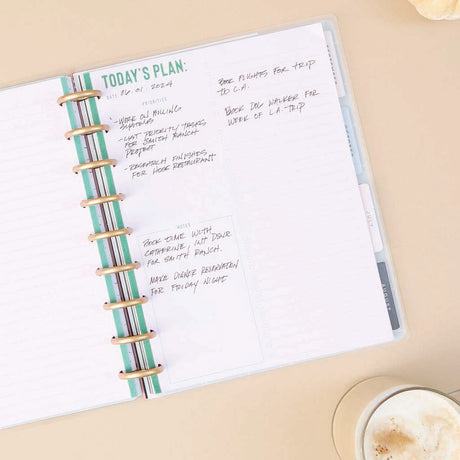 TODAY'S PLAN:
DATE 06.01.2024
PRIORITIES
- WORK ON BILLING
SYSTEMS
- LIST PRIORITY TASKS
FOR SMITH RANCH
PROJECT
- RESEARCH FINISHES
FOR HOOK RESTAURANT
BOOK FLIGHTS FOR TRIP
TO L.A.
BOOK DOG WALKER FOR
WEEK OF L.A. TRIP
NOTES
BOOK TIME WITH
CATHERINE, INT DSNR
FOR SMITH RANCH.
MAKE DINNER RESERVATION
FOR FRIDAY NIGHT
JULY
AUGUST